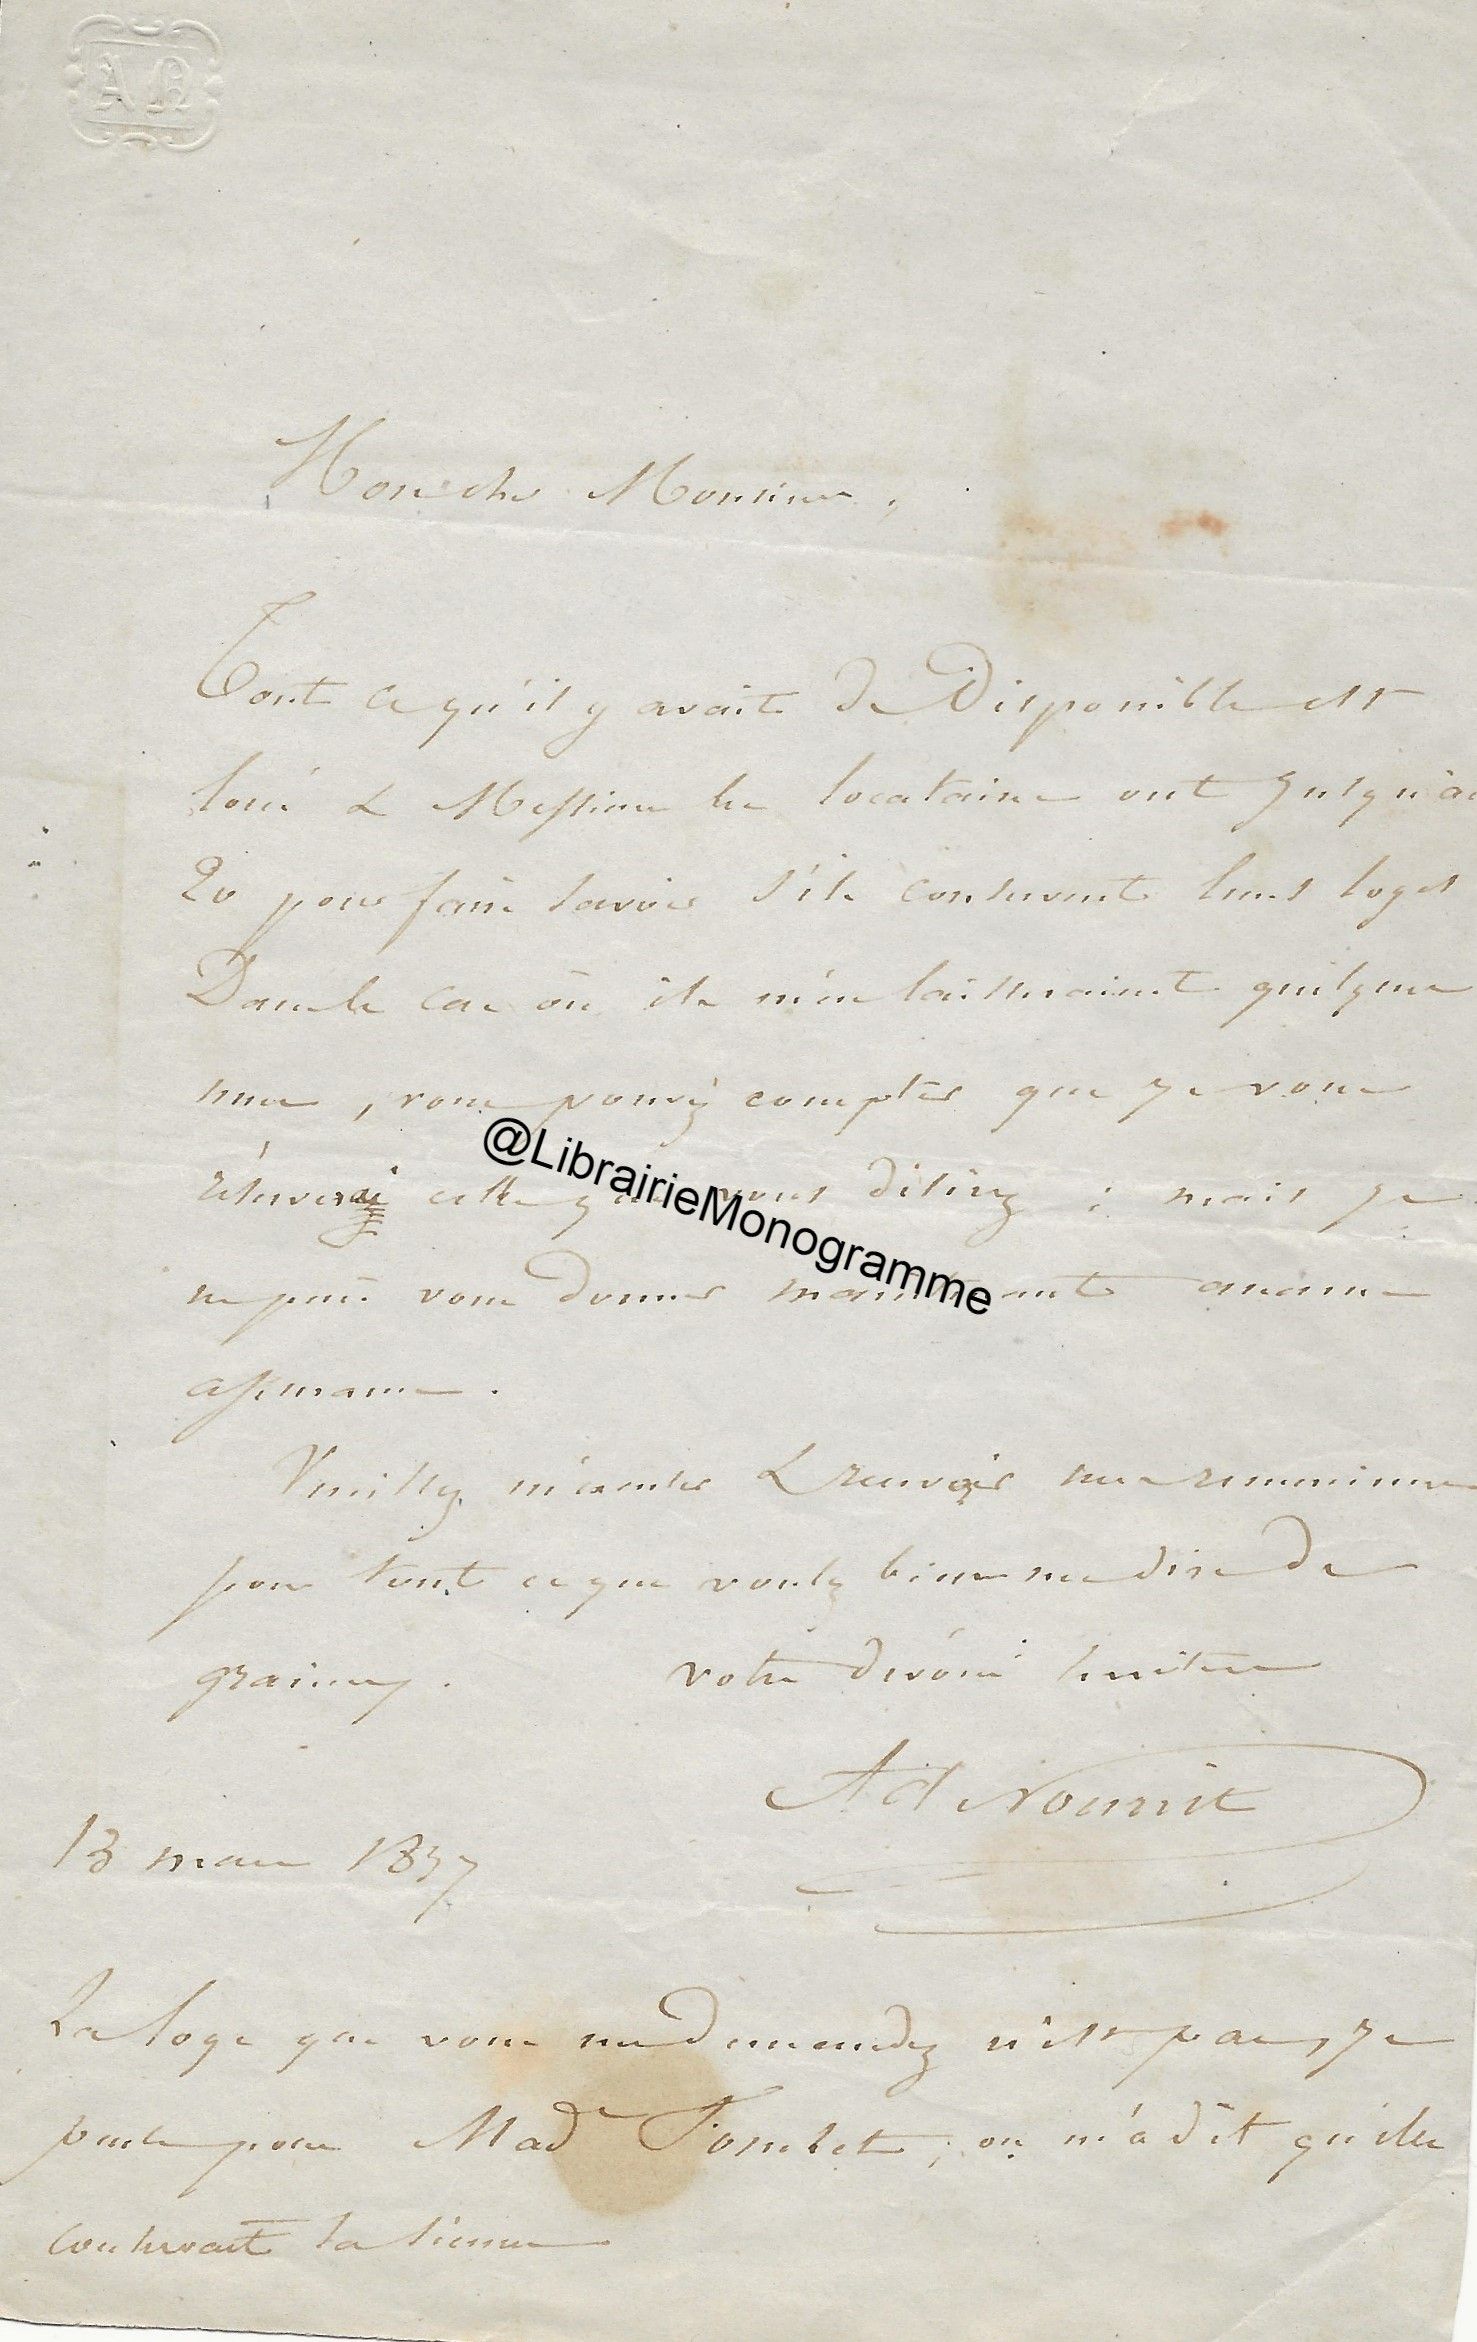 AN
Mon cher Monsieur,
Tout ce qu'il y avait de Disponible est
loué & Messieurs les locataires ont jusqu'au
20 pour faire savoir s'ils conservent leurs loges
Dans le cas où ils m'en laisseraient quelques
unes, vous pouvez compter que je vous
réserverai celle que vous désirez ; mais je
ne puis vous donner maintenant aucune
assurance.
Veuillez m'excuser & recevoir mes remerciemens
pour tout ce que voulez bien me dire de
gracieux. votre dévoué serviteur
Ad Nourrit
13 mars 1837
La loge que vous me demandez n'est pas, je
pense pour Mad.e ; on m'a dit qu'elle
conservait la sienne
@LibrairieMonogramme